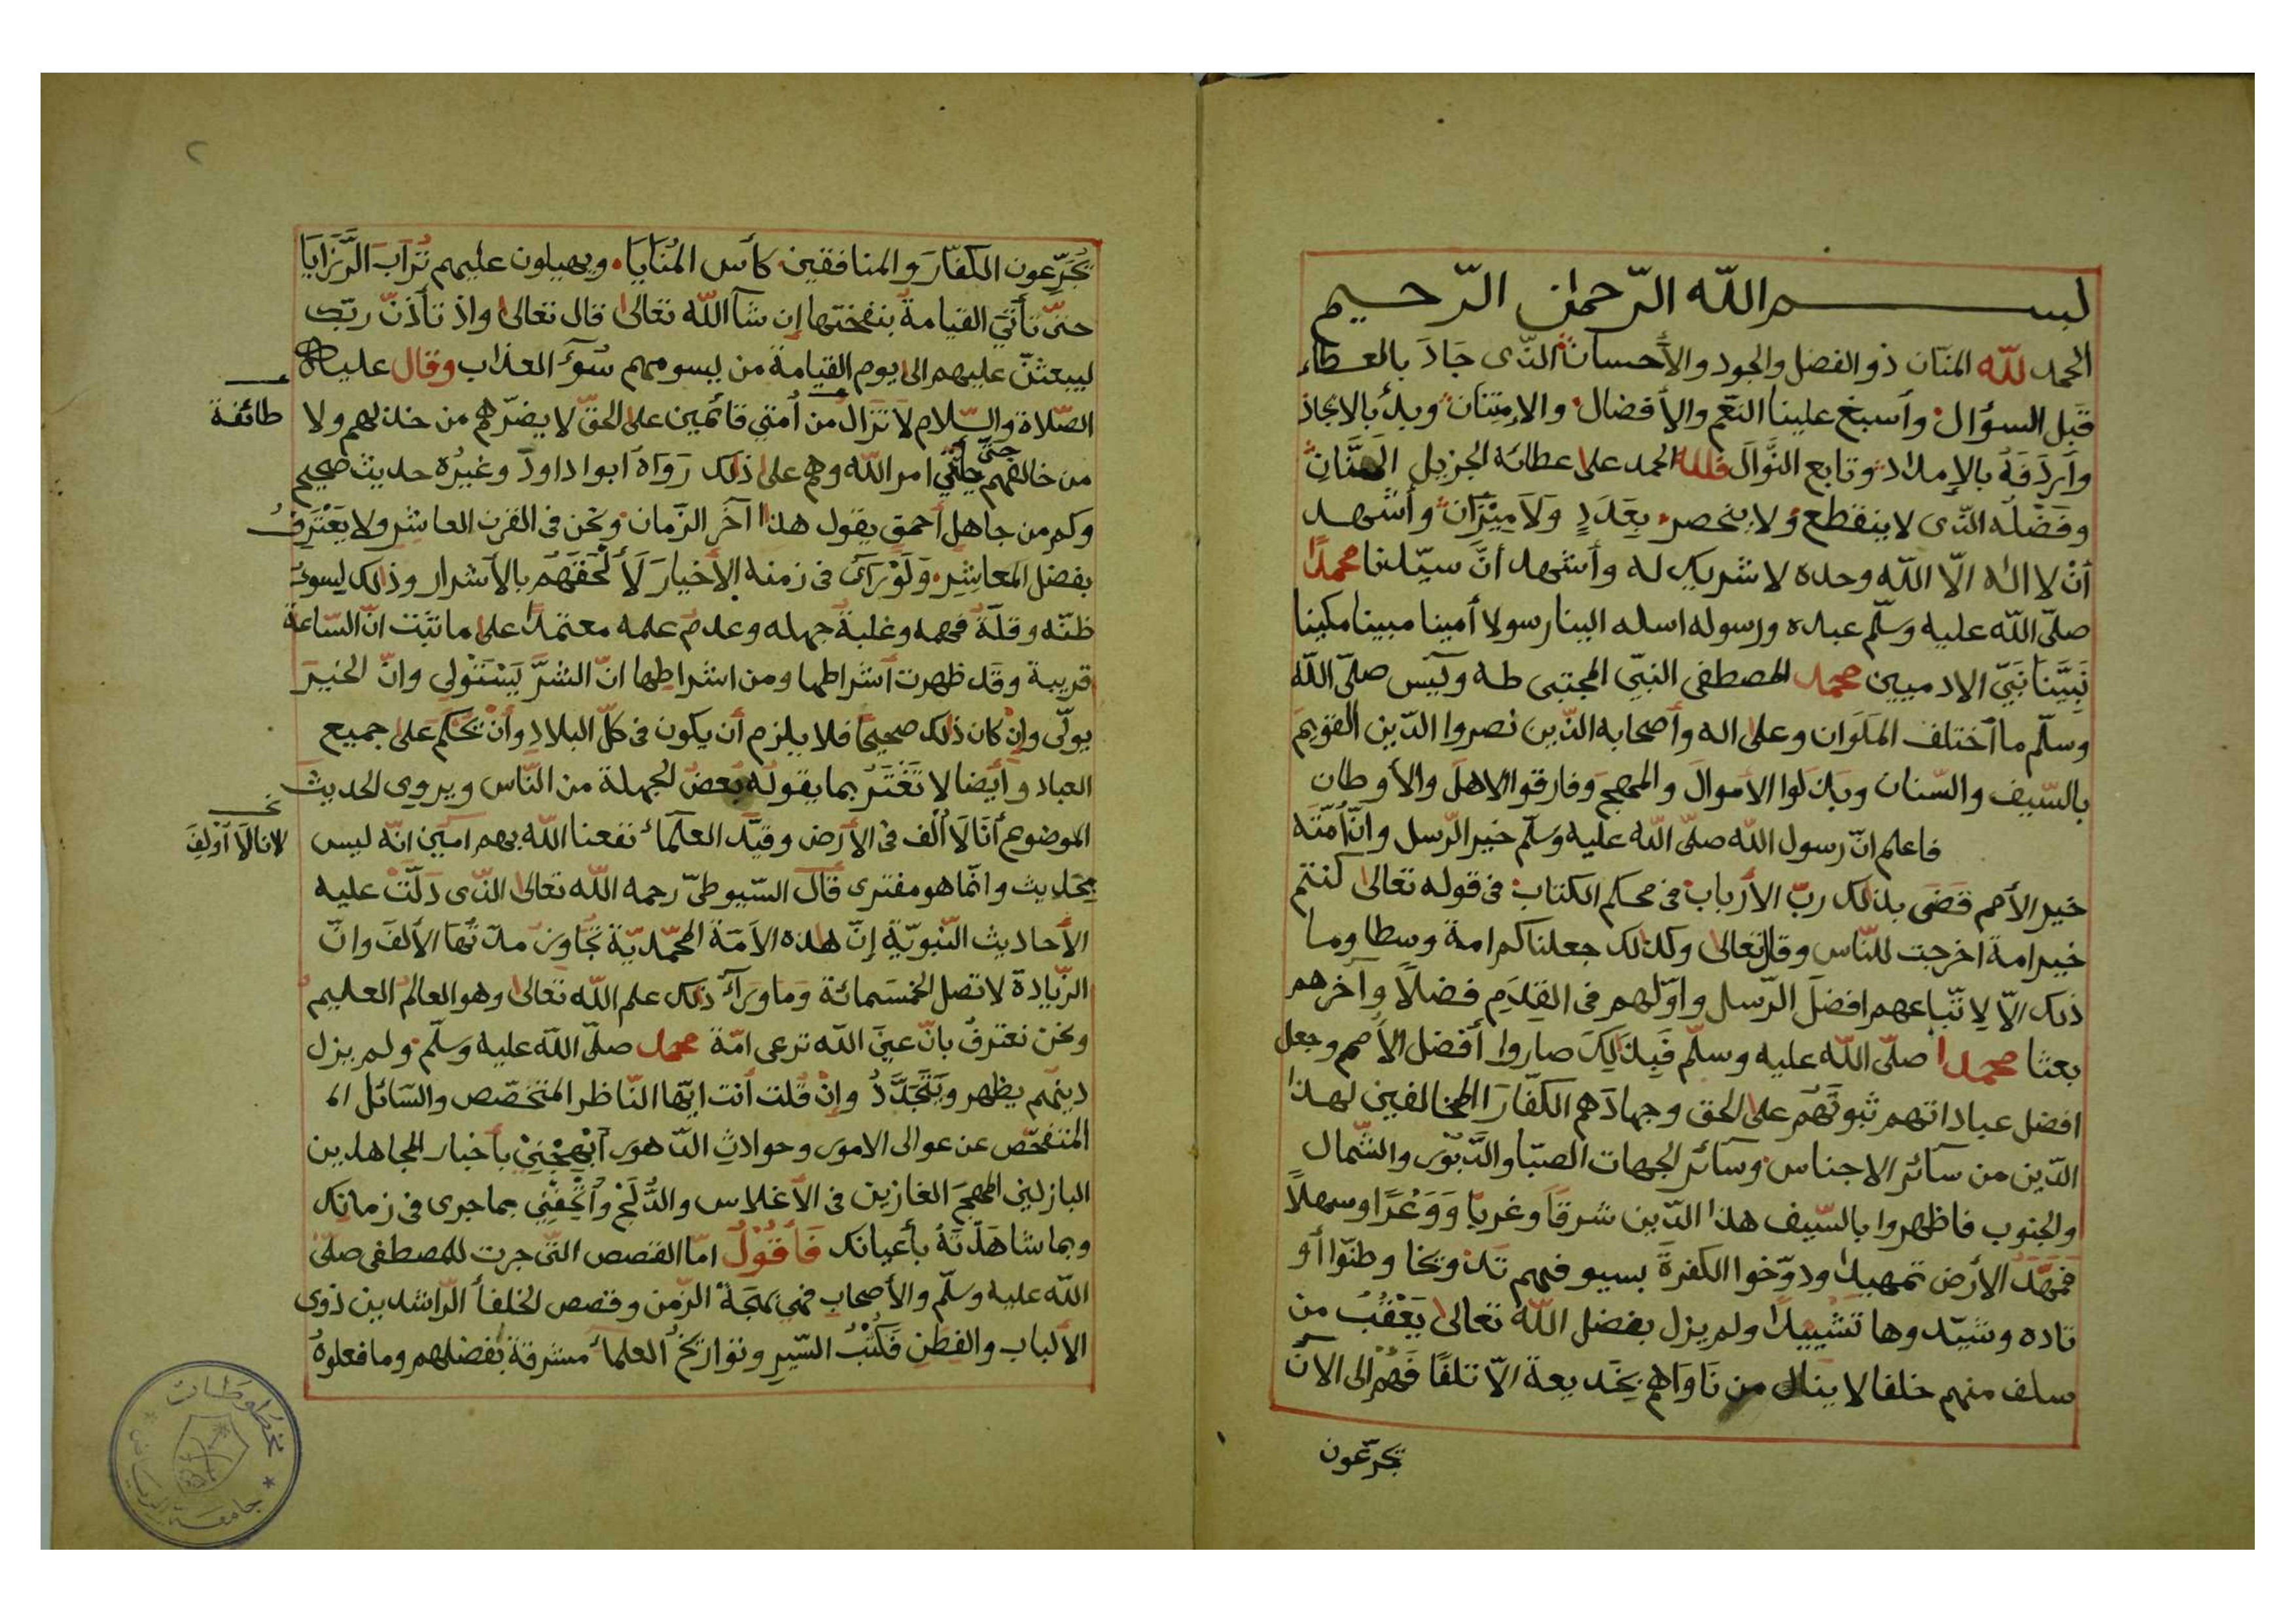 بسم الله الرّحمٰن الرّحيم
الحمد لله المنّان ذو الفضل والجود والأحسان الذّى جَادَ بالعطاء
قَبل السؤال وأسبغ علينا النعَم والأفضال والإمتنان وبدأ بالايجاد
وأردَفَهُ بالإمداد وتابع النَّوالَ فلله الحمد على عطائه الجزيل الهتَّانِ
وفَضْلُه الذّى لا ينقطع ولا ينحصر بِعَدَدٍ وَلَا مِيْزَان وأشهد
أنْ لا اله الّا الله وحده لا شريك له وأشهد أنَّ سيّدنا محمدًا
صلّى الله عليه وسَلّم عبده ورسوله ارسله الينا رسولا أمينا مبينا مكينا
نَبِيَّنَا نَبِيّ الادميين محمد المصطفى النبيّ المجتبى طه ويٓس صلّى الله
وسلّم ما اختلف المَلَوَان وعلى اله وأصحابه الذّين نصروا الدّين القويم
بالسّيف والسّنان وبذلوا الأموالَ والمهجَ وفارقوا الاهلَ والأوطان
فاعلم انّ رسول الله صلّى الله عليه وسَلّم خير الرّسل وانّ أُمّتَه
خير الأمم قَضَى بذلك ربّ الأرباب فى محكم الكتاب فى قوله تعالى كنتم
خير امة اخرجت للنّاس وقال تعالى وكذلك جعلناكم امة وسطا وما
ذلك الّا لِاتّباعهم افضلَ الرّسل واوّلهم فى القِدَم فضلاً وآخرهم
بعثا محمدا صلّى الله عليه وسلّم فَبِذَلِكَ صاروا أفضل الأمم وجعل
افضل عباداتهم ثبوتَهُم على الحق وجهادَهم الكفّارَ المخالفين لهذا
الدّين من سآئر الاجناس وسآئر الجهات الصبّا والدّبّور والشّمال
والجنوب فاظهروا بالسّيف هذا الدّين شرقاً وغربًا وَوَعْرًا وسهلاً
فمَهَّدَ الأرض تمهيدًا ودوّخوا الكفرةَ بسيوفهم تدويخا وطنّوا أو
تاده وشيّدوها تشييدًا ولم يزل بفضل الله تعالى يَعْقُبُ من
سلف منهم خلفا لا ينال من نَاوَاهم بخديعة الّا تلفًا فَهُم الى الآن
تجرّعون
٢
تُجَرِّعون الكفّارَ والمنافقين كأس المُنَايَا ويهيلون عليهم تُرَابَ الرَّزَايَا
حتىّ تأتى القيامةُ بنفختها إن شآ الله تعالى قال تعالى واذ تأذنّ ربّك
ليبعثنّ عليهم الى يوم القيامة من يسومهم سُوٓءَ العذاب وقال عليه
الصّلاة والسّلام لا تزال من أمتي قآئمين على الحقّ لا يضرّهم من خذلهم ولا
طائفة
من خالفهم حتىّ يأتي امر الله وهم على ذلك رَوَاهُ ابوا داودَ وغيرُه حديث صحيح
وكم من جاهل أحمق يقول هذا آخر الزّمان ونحن فى القرن العاشر ولا يَعْتَرِفُ
بفضل المعاشِرِ وَلَوْ رَآى فى زمنه الأخيارَ لَأَلحَقَهُم بالأشرار وذلك لسوءِ
ظنّه وقلّة فهمه وغلبةُ جهله وعدم علمه معتمدًا على ما ثبَت انّ السّاعة
قريبة وقد ظهرت أشراطها ومن اشراطها انّ الشرَّ يَسْتَوْلى وانّ الخيَرَ
يولّى وإن كان ذلك صحيحًا فلا يلزم أن يكون فى كلّ البلاد وأن نحكم على جميع
العباد وأيضا لا تَغْتَرّ بما يقوله بعض الجهلة من النّاس ويروى الحديثَ
الموضوع أنَا لَا أُلف فى الأرض وقيّد العلمآء نفعنا الله بهم امين انّه ليس
لانا لَا أولَفَ
بحَدِيث وانّما هو مفترى قالَ السّيوطىّ رحمه الله تعالى الذّى دَلّتْ عليه
الأحاديث النّبويّة إنّ هذه الأمّة المحمّديّة تُجَاوِز مدّتُهَا الألفَ وانّ
الزّيادةَ لا تصل الخمسَمائة وَما وَرَآءَ ذلك علم الله تعالى وهو العالمُ العليم
ونحن نعترفُ بانّ عينَ الله ترعى امّة محمد صلّى الله عليه وسَلّم ولم يزل
دينهم يظهر ويَتَجَدَّدُ وإن قلت أنت ايّها النّاظر المتخصّص والسّائل
المتفحّص عن عوالى الامور وحوادثِ الدّهور أَبْهِجْنِي بأخبار المجاهدين
الباذلين المهجَ الغازين فى الأغلاس والدُّلَجْ وأَتْحِفْنِي بما جرى فى زمانك
وبما شاهَدْتَهُ بأعيانك فَأَقُوْلُ امّا القصص التّى جرت للمصطفى صلّى
الله عليه وسلّم والأصحاب فهي بَهْجَةُ الزّمن وقصص الخلفآ الرّاشدين ذوى
الألباب والفِطَن فكُتُبُ السّيرِ وتواريخُ العلمآء مشرقة بفضلهم وما فعلوهُ
مخطوطات
جامعة الرياض